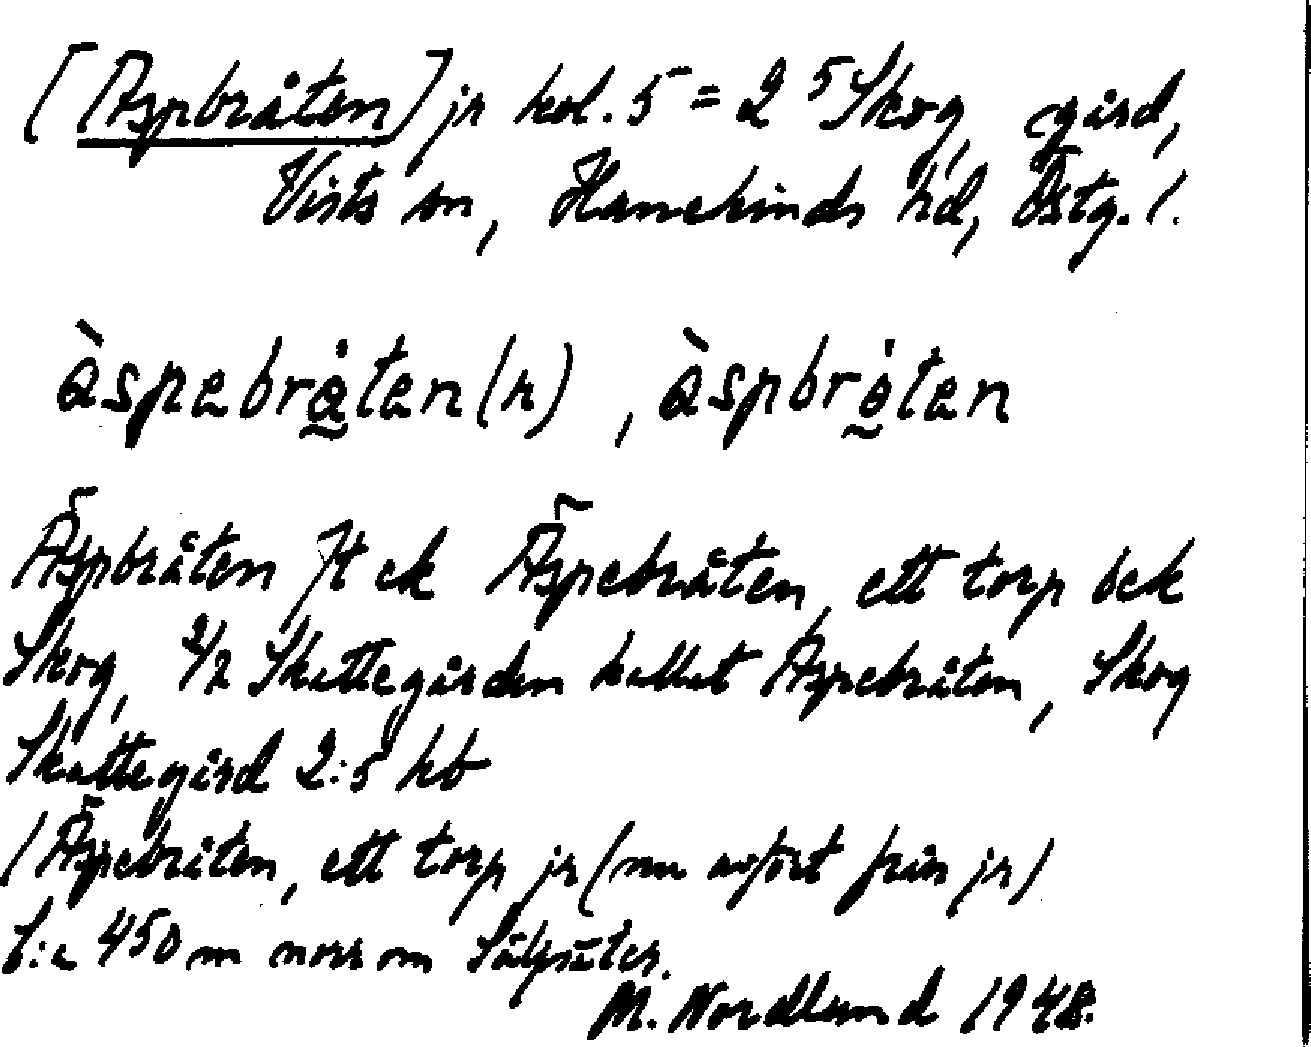 [Aspbråten] jr kol. 5 = 2⁵ Skog, gård,
Vists sn, Hanekinds hd, Östg. l.
àspebrå̰ten(n), àspbrå̰ten
Aspbråten Jt ek Aspebråten, ett torp bek
Skog, 2/2 Skattegården kallat Aspebråten, Skog
Skattegård 2:5 hb
/Aspebråten, ett torp jr (nu avfört från jr)
C:a 450 m norr om Sälgsäter.
M. Nordlund 1948.